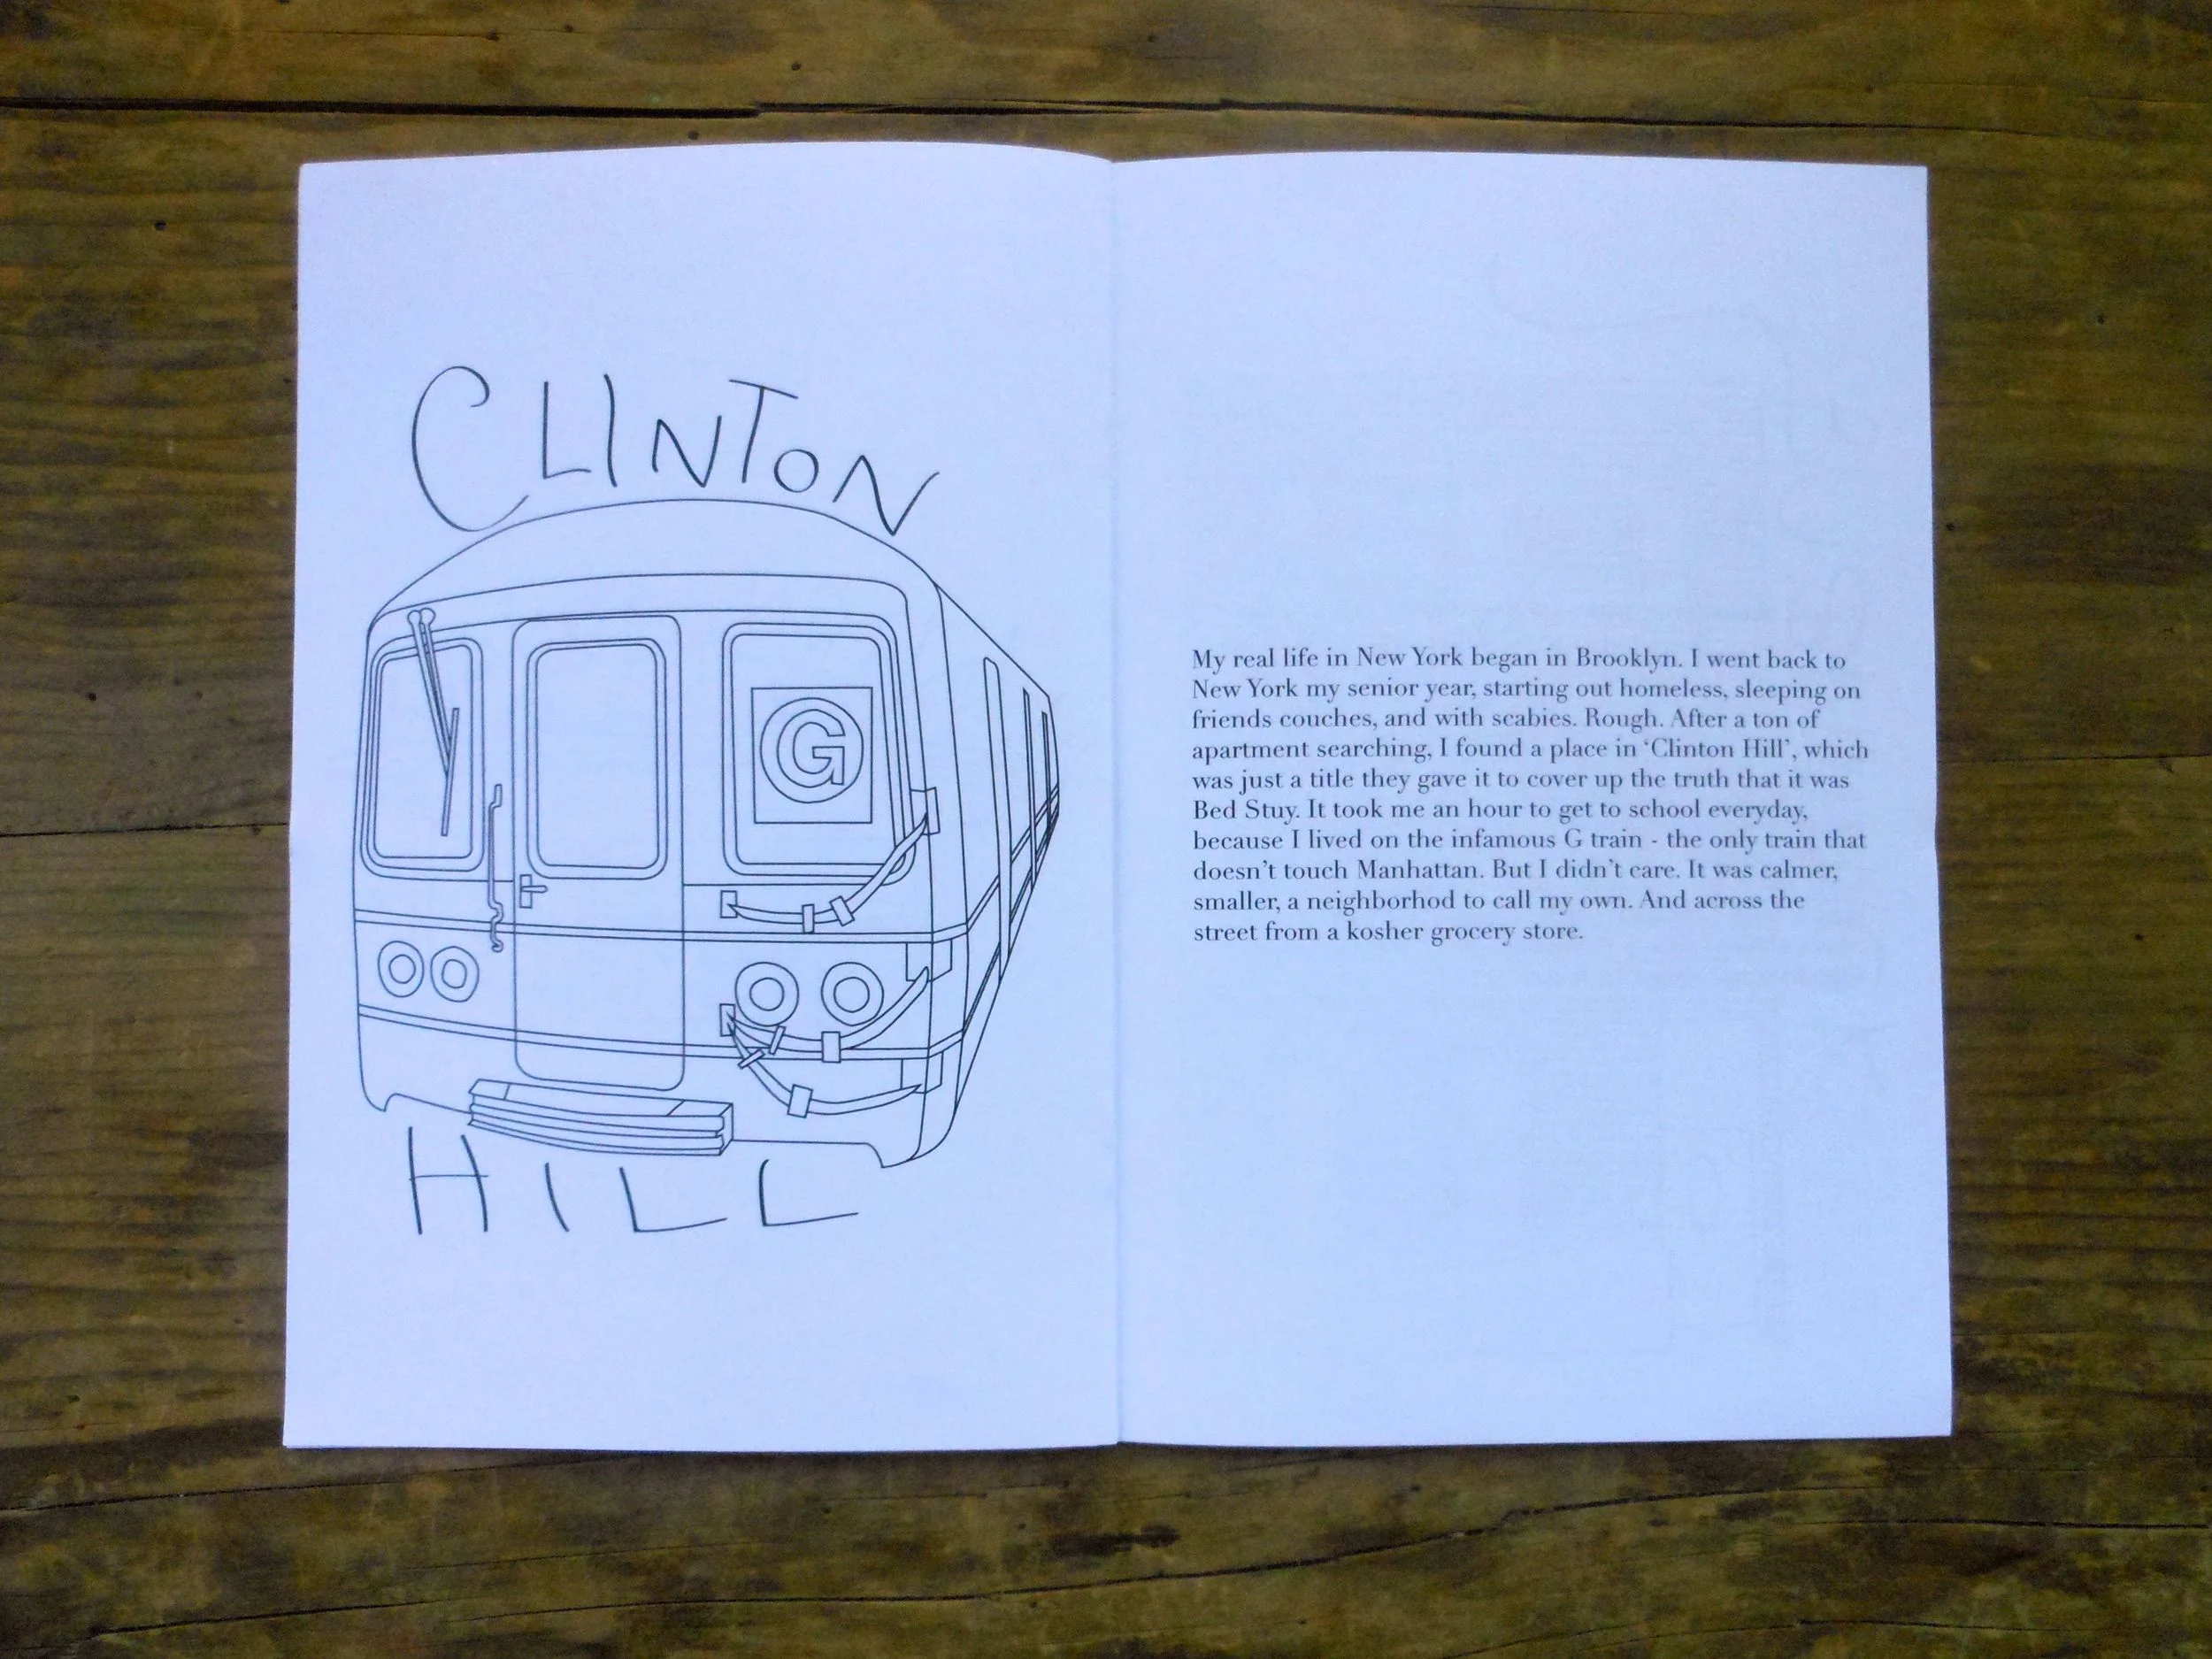 CLINTON
G
HILL
My real life in New York began in Brooklyn. I went back to
New York my senior year, starting out homeless, sleeping on
friends couches, and with scabies. Rough. After a ton of
apartment searching, I found a place in ‘Clinton Hill’, which
was just a title they gave it to cover up the truth that it was
Bed Stuy. It took me an hour to get to school everyday,
because I lived on the infamous G train - the only train that
doesn’t touch Manhattan. But I didn’t care. It was calmer,
smaller, a neighborhod to call my own. And across the
street from a kosher grocery store.